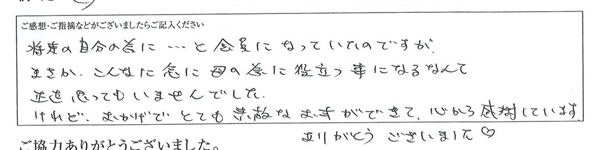 ご感想・ご指摘などがございましたらご記入ください
将来の自分の為に…と会員になっていたのですが、
まさか、こんなに急に母の為に役立つ事になるなんて
思ってもいませんでした。
けれど、おかげでとても素敵なお式ができて、心から感謝しています。
ありがとうございました♡
ご協力ありがとうございました。